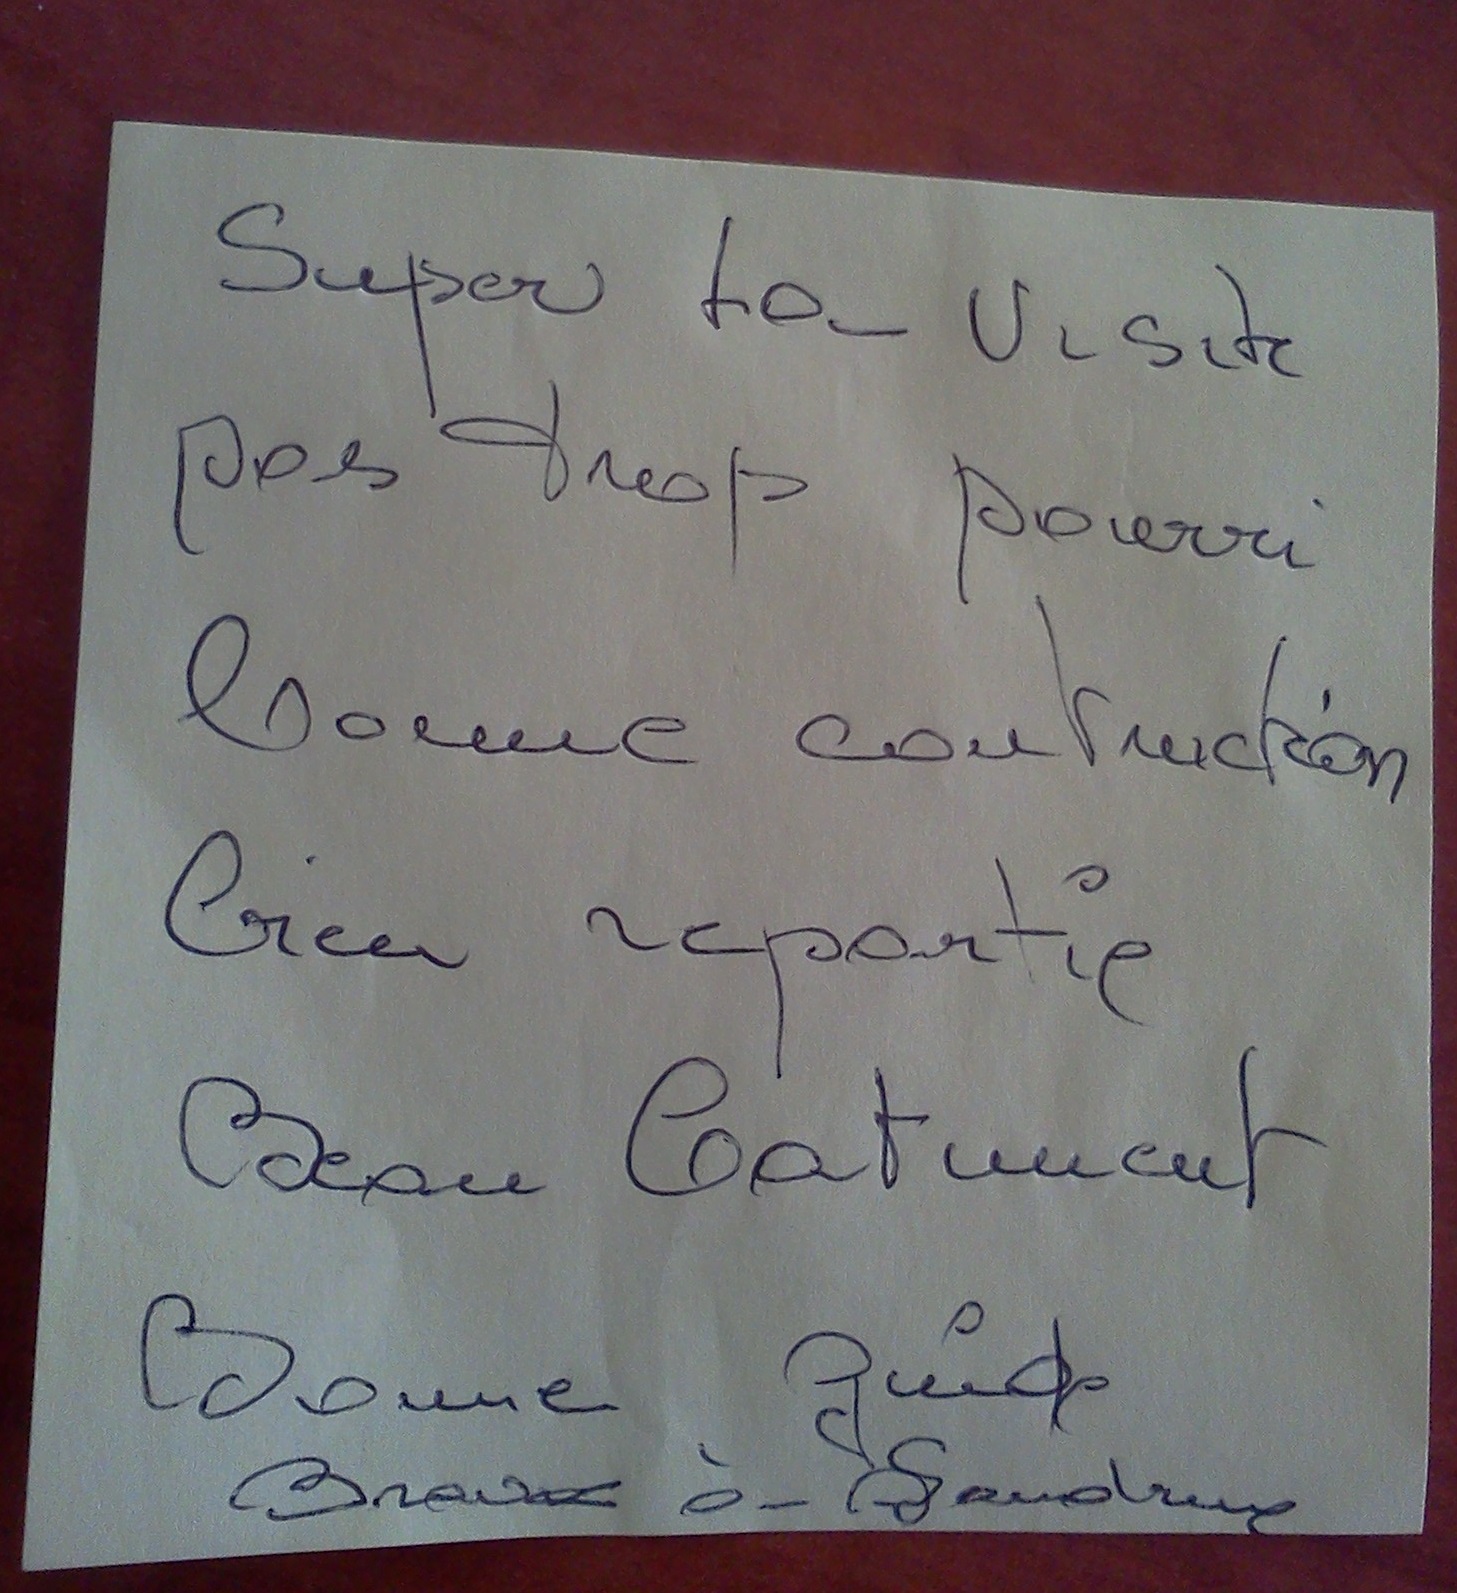 Super ta visite
pas trop pourri
bonne contruction
bien repartie
Beau batiment
Bonne guide
Bravo à Sandrine